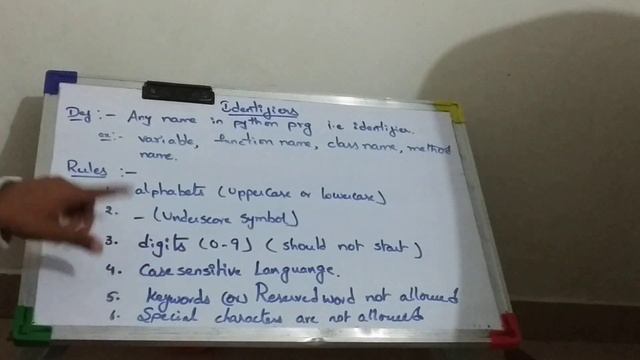 Identifiers
Def :- Any name in python prg i.e identifier.
ex:- variable, function name, class name, method
name.
Rules :-
1. alphabets (uppercase or lowercase)
2. _ (Underscore symbol)
3. digits (0-9) (should not start)
4. Case sensitive Languange.
5. Keywords (or) Reserved word not allowed
6. Special characters are not allowed